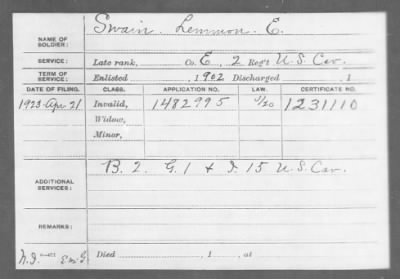 NAME OF SOLDIER: Swain, Lemmon E.
SERVICE: Late rank, Co. E, 2 Reg't U.S. Cav.
TERM OF SERVICE: Enlisted , 1902 Discharged , 1
DATE OF FILING. CLASS. APPLICATION NO. LAW. CERTIFICATE NO.
1923 Apr 21 Invalid, 1482995 4/20 1231110
Widow,
Minor,
ADDITIONAL SERVICES: B. 2. G. 1 & I. 15 U.S. Cav.
REMARKS:
Died , 1 , at